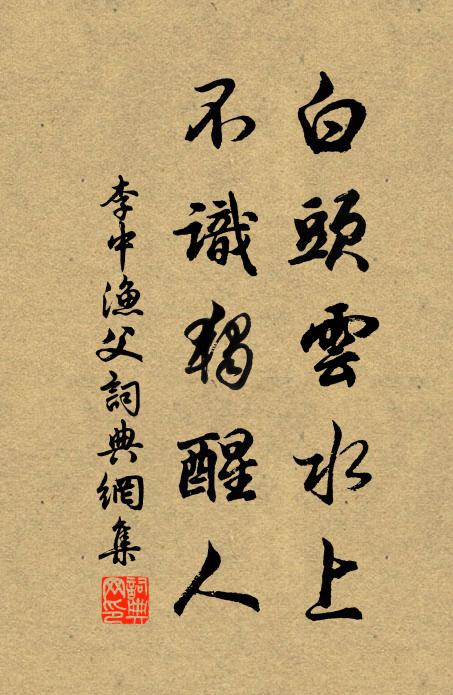 白頭雲水上
不識獨醒人
李中漁父詞典網集
詞典網印